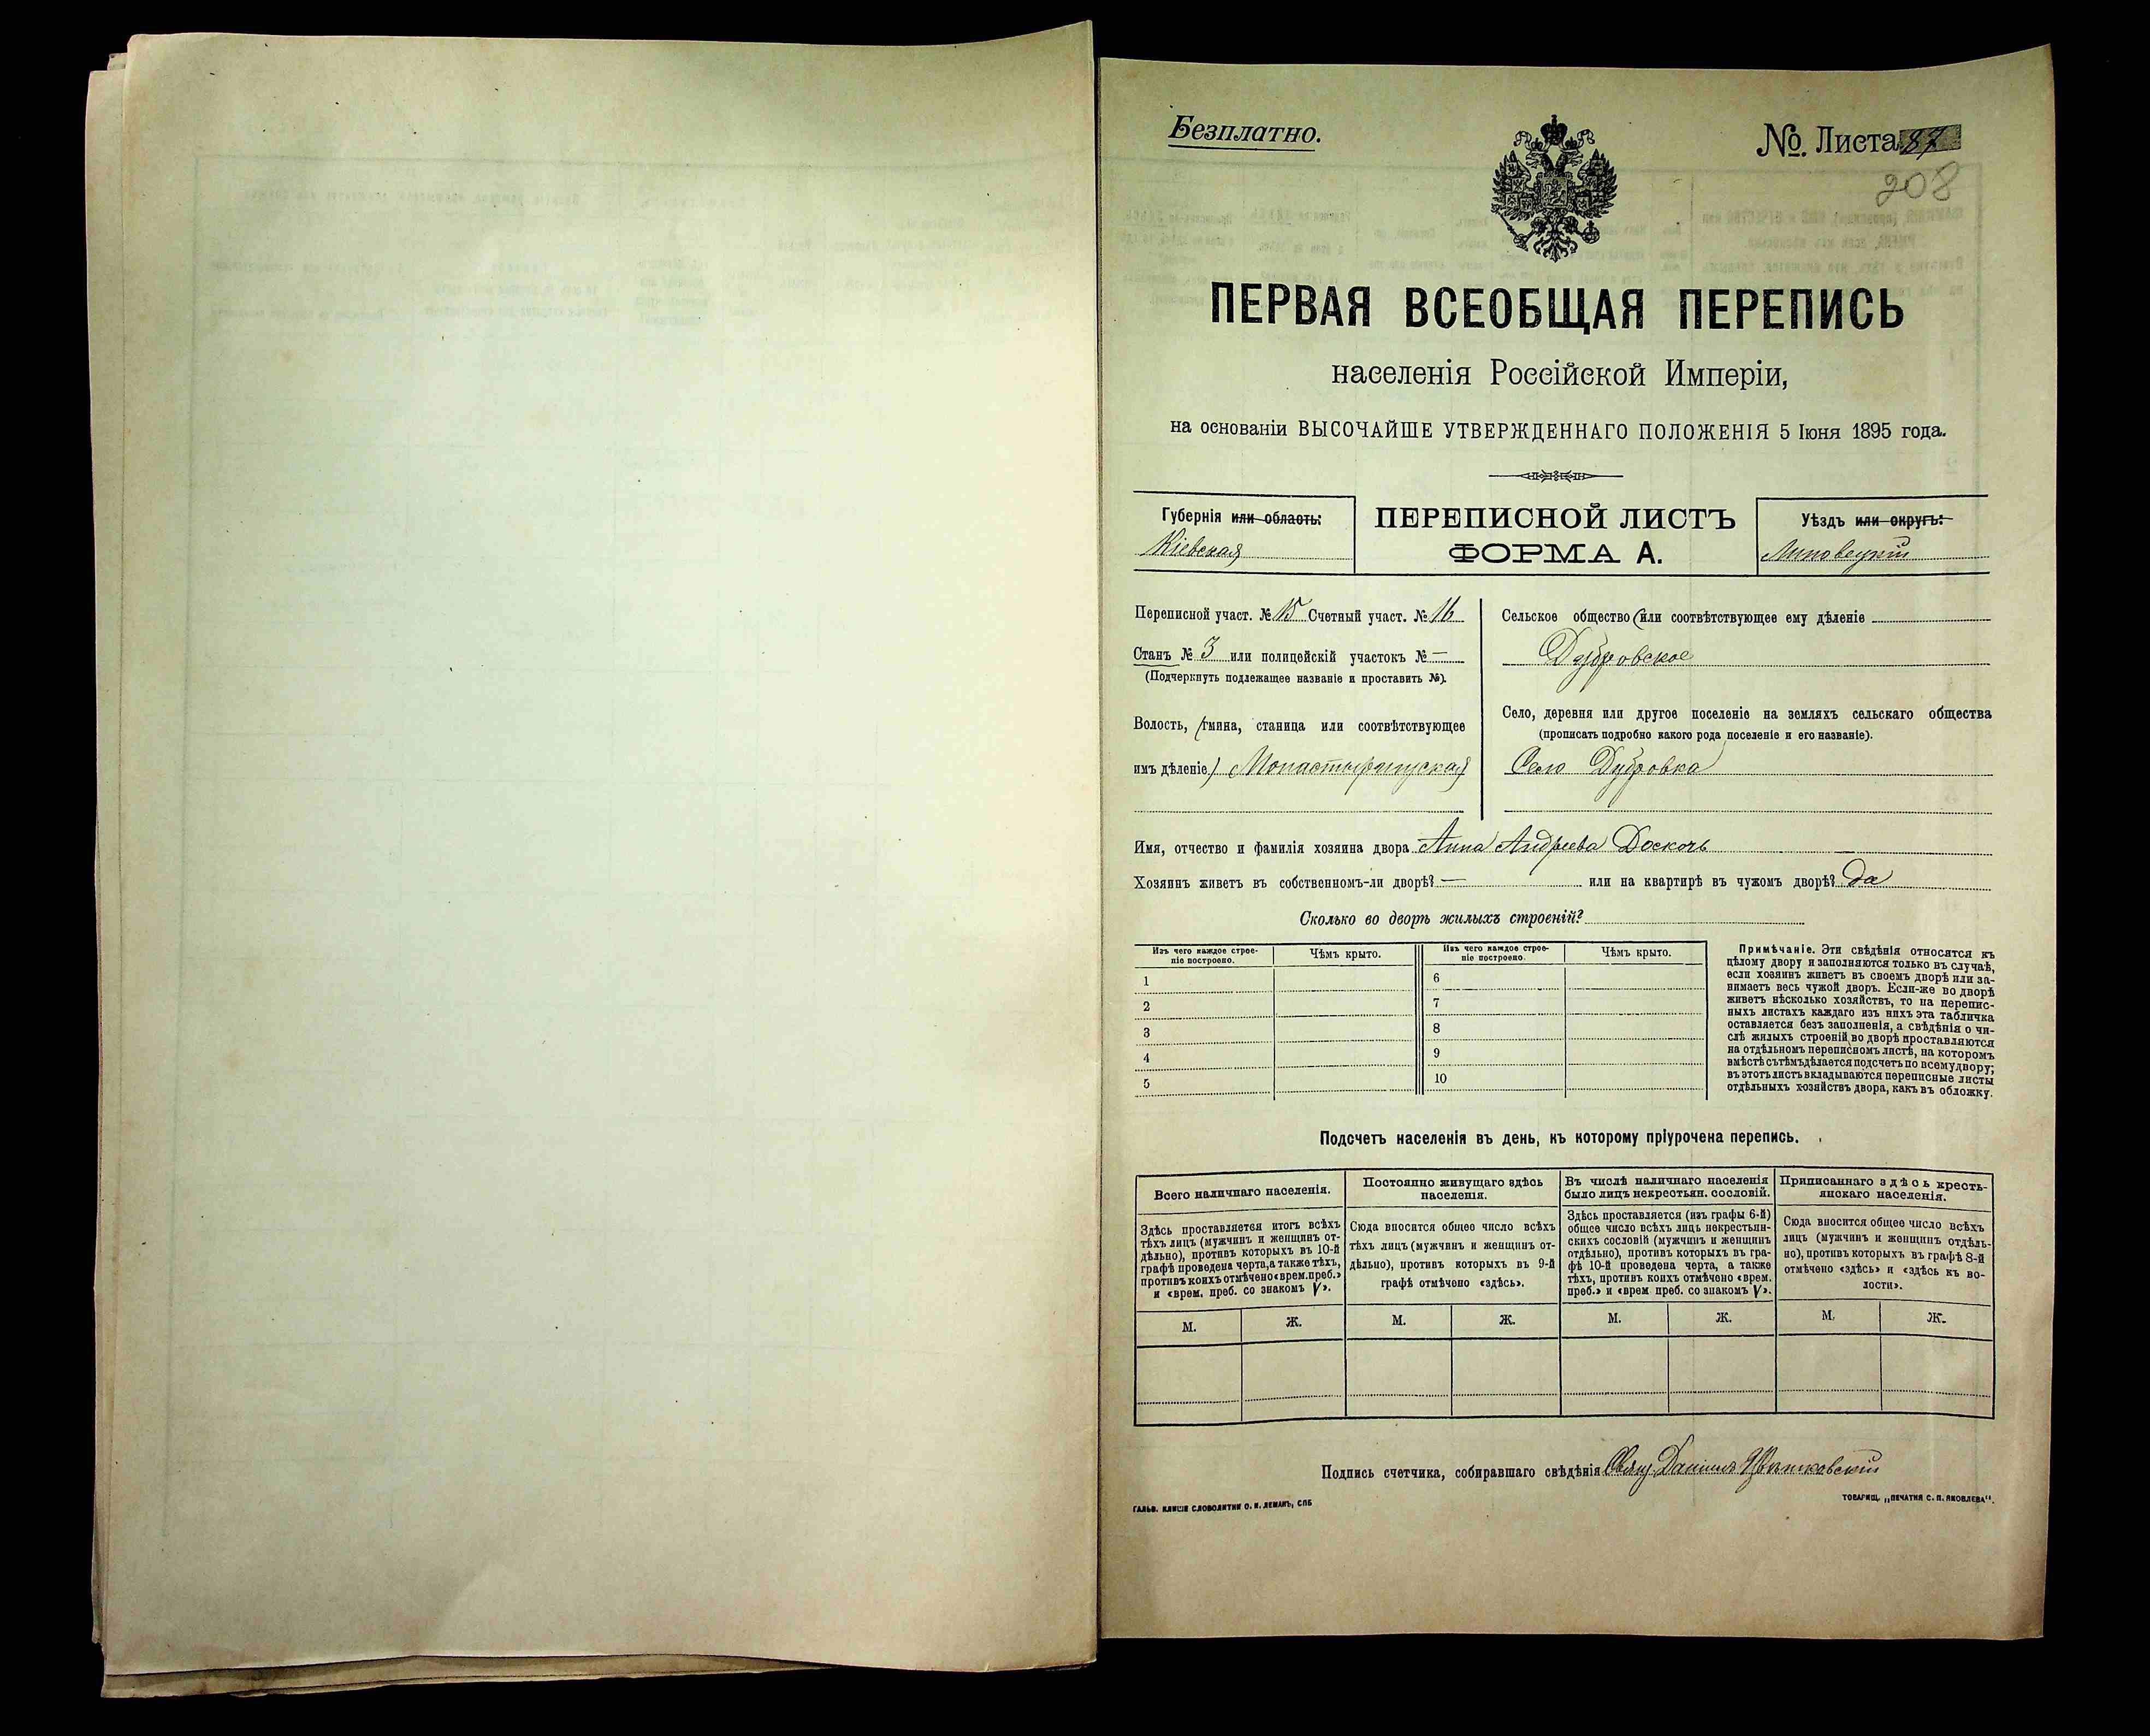 Безплатно.
№. Листа 87
208
ПЕРВАЯ ВСЕОБЩАЯ ПЕРЕПИСЬ
населенія Россійской Имперіи,
на основаніи ВЫСОЧАЙШЕ УТВЕРЖДЕННАГО ПОЛОЖЕНІЯ 5 Іюня 1895 года.
Губернія или область:
Кіевская
ПЕРЕПИСНОЙ ЛИСТЪ
ФОРМА А.
Уѣздъ или округъ:
Липовецкій
Переписной участ. № 15 Счетный участ. № 16
Станъ № 3 или полицейскій участокъ № —
(Подчеркнуть подлежащее названіе и проставить №).
Волость, (гмина, станица или соотвѣтствующее
имъ дѣленіе) Монастырищская
Сельское общество (или соотвѣтствующее ему дѣленіе
Дубровское
Село, деревня или другое поселеніе на земляхъ сельскаго общества
(прописать подробно какого рода поселеніе и его названіе).
Село Дубровка
Имя, отчество и фамилія хозяина двора Анна Андреева Доскочъ
Хозяинъ живетъ въ собственномъ-ли дворѣ? — или на квартирѣ въ чужомъ дворѣ? да
Сколько во дворѣ жилыхъ строеній?
Изъ чего каждое строе-
ніе построено.
Чѣмъ крыто.
Изъ чего каждое строе-
ніе построено.
Чѣмъ крыто.
1
2
3
4
5
6
7
8
9
10
Примѣчаніе. Эти свѣдѣнія относятся къ
цѣлому двору и заполняются только въ случаѣ,
если хозяинъ живетъ въ своемъ дворѣ или за-
нимаетъ весь чужой дворъ. Если-же во дворѣ
живетъ нѣсколько хозяйствъ, то на перепис-
ныхъ листахъ каждаго изъ нихъ эта табличка
оставляется безъ заполненія, а свѣдѣнія о чи-
слѣ жилыхъ строеній во дворѣ проставляются
на отдѣльномъ переписномъ листѣ, на которомъ
вмѣстѣ съ тѣмъ дѣлается подсчетъ по всему двору;
въ этотъ листъ вкладываются переписные листы
отдѣльныхъ хозяйствъ двора, какъ въ обложку.
Подсчетъ населенія въ день, къ которому пріурочена перепись.
Всего наличнаго населенія.
Здѣсь проставляется итогъ всѣхъ
тѣхъ лицъ (мужчинъ и женщинъ от-
дѣльно), противъ которыхъ въ 10-й
графѣ проведена черта, а также тѣхъ,
противъ коихъ отмѣчено «врем. преб.»
и «врем. преб. со знакомъ V».
Постоянно живущаго здѣсь
населенія.
Сюда вносится общее число всѣхъ
тѣхъ лицъ (мужчинъ и женщинъ от-
дѣльно), противъ которыхъ въ 9-й
графѣ отмѣчено «здѣсь».
Въ числѣ наличнаго населенія
было лицъ некрестьян. сословій.
Здѣсь проставляется (изъ графы 6-й)
общее число всѣхъ лицъ некрестьян-
скихъ сословій (мужчинъ и женщинъ
отдѣльно), противъ которыхъ въ гра-
фѣ 10-й проведена черта, а также
тѣхъ, противъ коихъ отмѣчено «врем.
преб.» и «врем преб. со знакомъ V».
Приписаннаго здѣсь кресть-
янскаго населенія.
Сюда вносится общее число всѣхъ
лицъ (мужчинъ и женщинъ отдѣль-
но), противъ которыхъ въ графѣ 8-й
отмѣчено «здѣсь» и «здѣсь къ во-
лости».
М. Ж. М. Ж. М. Ж. М. Ж.
Подпись счетчика, собиравшаго свѣдѣнія Даніилъ
ГАЛЬВ. КЛИШЕ СЛОВОЛИТНИ О. И. ЛЕМАНЪ, СПБ
ТОВАРИЩ. „ПЕЧАТНЯ С. П. ЯКОВЛЕВА“.